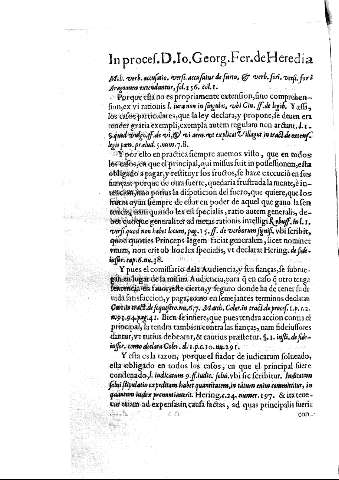 In proces. D. Io. Georg. Fer. de Heredia
Mol. verb. accusatio. versi. accusatur de furto, & verb. fori. versi. fori
Aragonum extenduntur, fol. 156. col. 1.
Porque esta no es propriamente extension, sino comprehen-
sion, ex vi rationis l. in singulis, vbi Gto. ff. de legib. Y assi,
los casos particulares, que la ley declara, y propone, se deuen era
render gratia exempli, exempla autem regulam non arctant, l. 1.
legis pœn. prælud. 5. num. 78.
Y por esto en practica siempre auemos visto, que en todos
los casos, en que el principal, qui missus fuit in possessionem, està
obligado a pagar, y restituyr los fructos, se haze execució en sus
fianças: porque de otra fuerte, quedaria frustrada la mente, è in-
tencion, imo porius la disposicion del fuero, que quiere, que los
frutos ayan siempre de estar en poder de aquel que gano la sen
tencia, nam quando lex est specialis, ratio autem generalis, de-
bet dictique generaliter ad metas rationis intelligi Rebuff. in l. 1.
versi quod non habet locum, pag. 15. ff. de verborum signifi. vbi scribit,
quod quoties Princeps legem facit generalem, licet nominet
vnum, non erit ob hoc lex specialis, vt declarat Hering. de fide-
iussor. cap. 6. nu. 38.
Y pues el comissario dela Audiencia, y sus fianças, se subrue-
gan en lugar de la misma Audiencia, para q̃ en caso q̃ otro tenga
sentencia en fauor, este cierto, y seguro donde ha de tener su de
uida satisfaccion, y paga, como en semejantes terminos declaran
nu. 93. 94. pag. 41. Bien se infiere, que pues tendra accion contra el
principal, la tendra tambien contra las fianças, nam fideiussores
dantur, vt tutius debeatur, & cautius præstetur. §. 1. insti. de fide-
iussor. como declara Coler. d. 1. p. c. 10. nu. 291.
Y esta es la razon, porque el fiador de iudicatum solueudo,
està obligado en todos los casos, en que el principal fuere
condenado, l. iudicatum 9. ff. iudic. solui. vbi sic scribitur. Iudicatum
solui stipulatio expeditam habet quantitatem, in tantum enim committitur, in
quantum iudex pronuntiauerit. Hering. c. 24. numer. 197. & ita tene-
tur etiam ad expensas in causa factas, ad quas principalis fuerit
con-